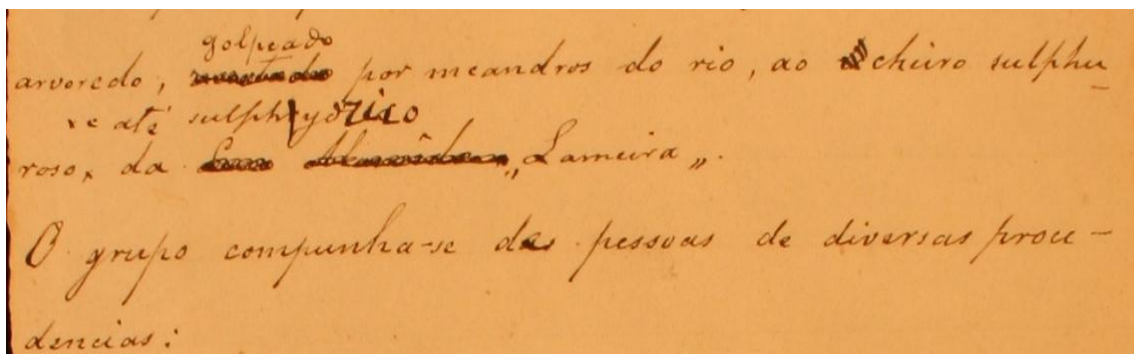 golpeado
arvoredo, por meandros do rio, ao cheiro sulphu-
x e até sulphydrico
roso, x da "Lameira".
O grupo compunha-se de pessoas de diversas proce-
dencias: